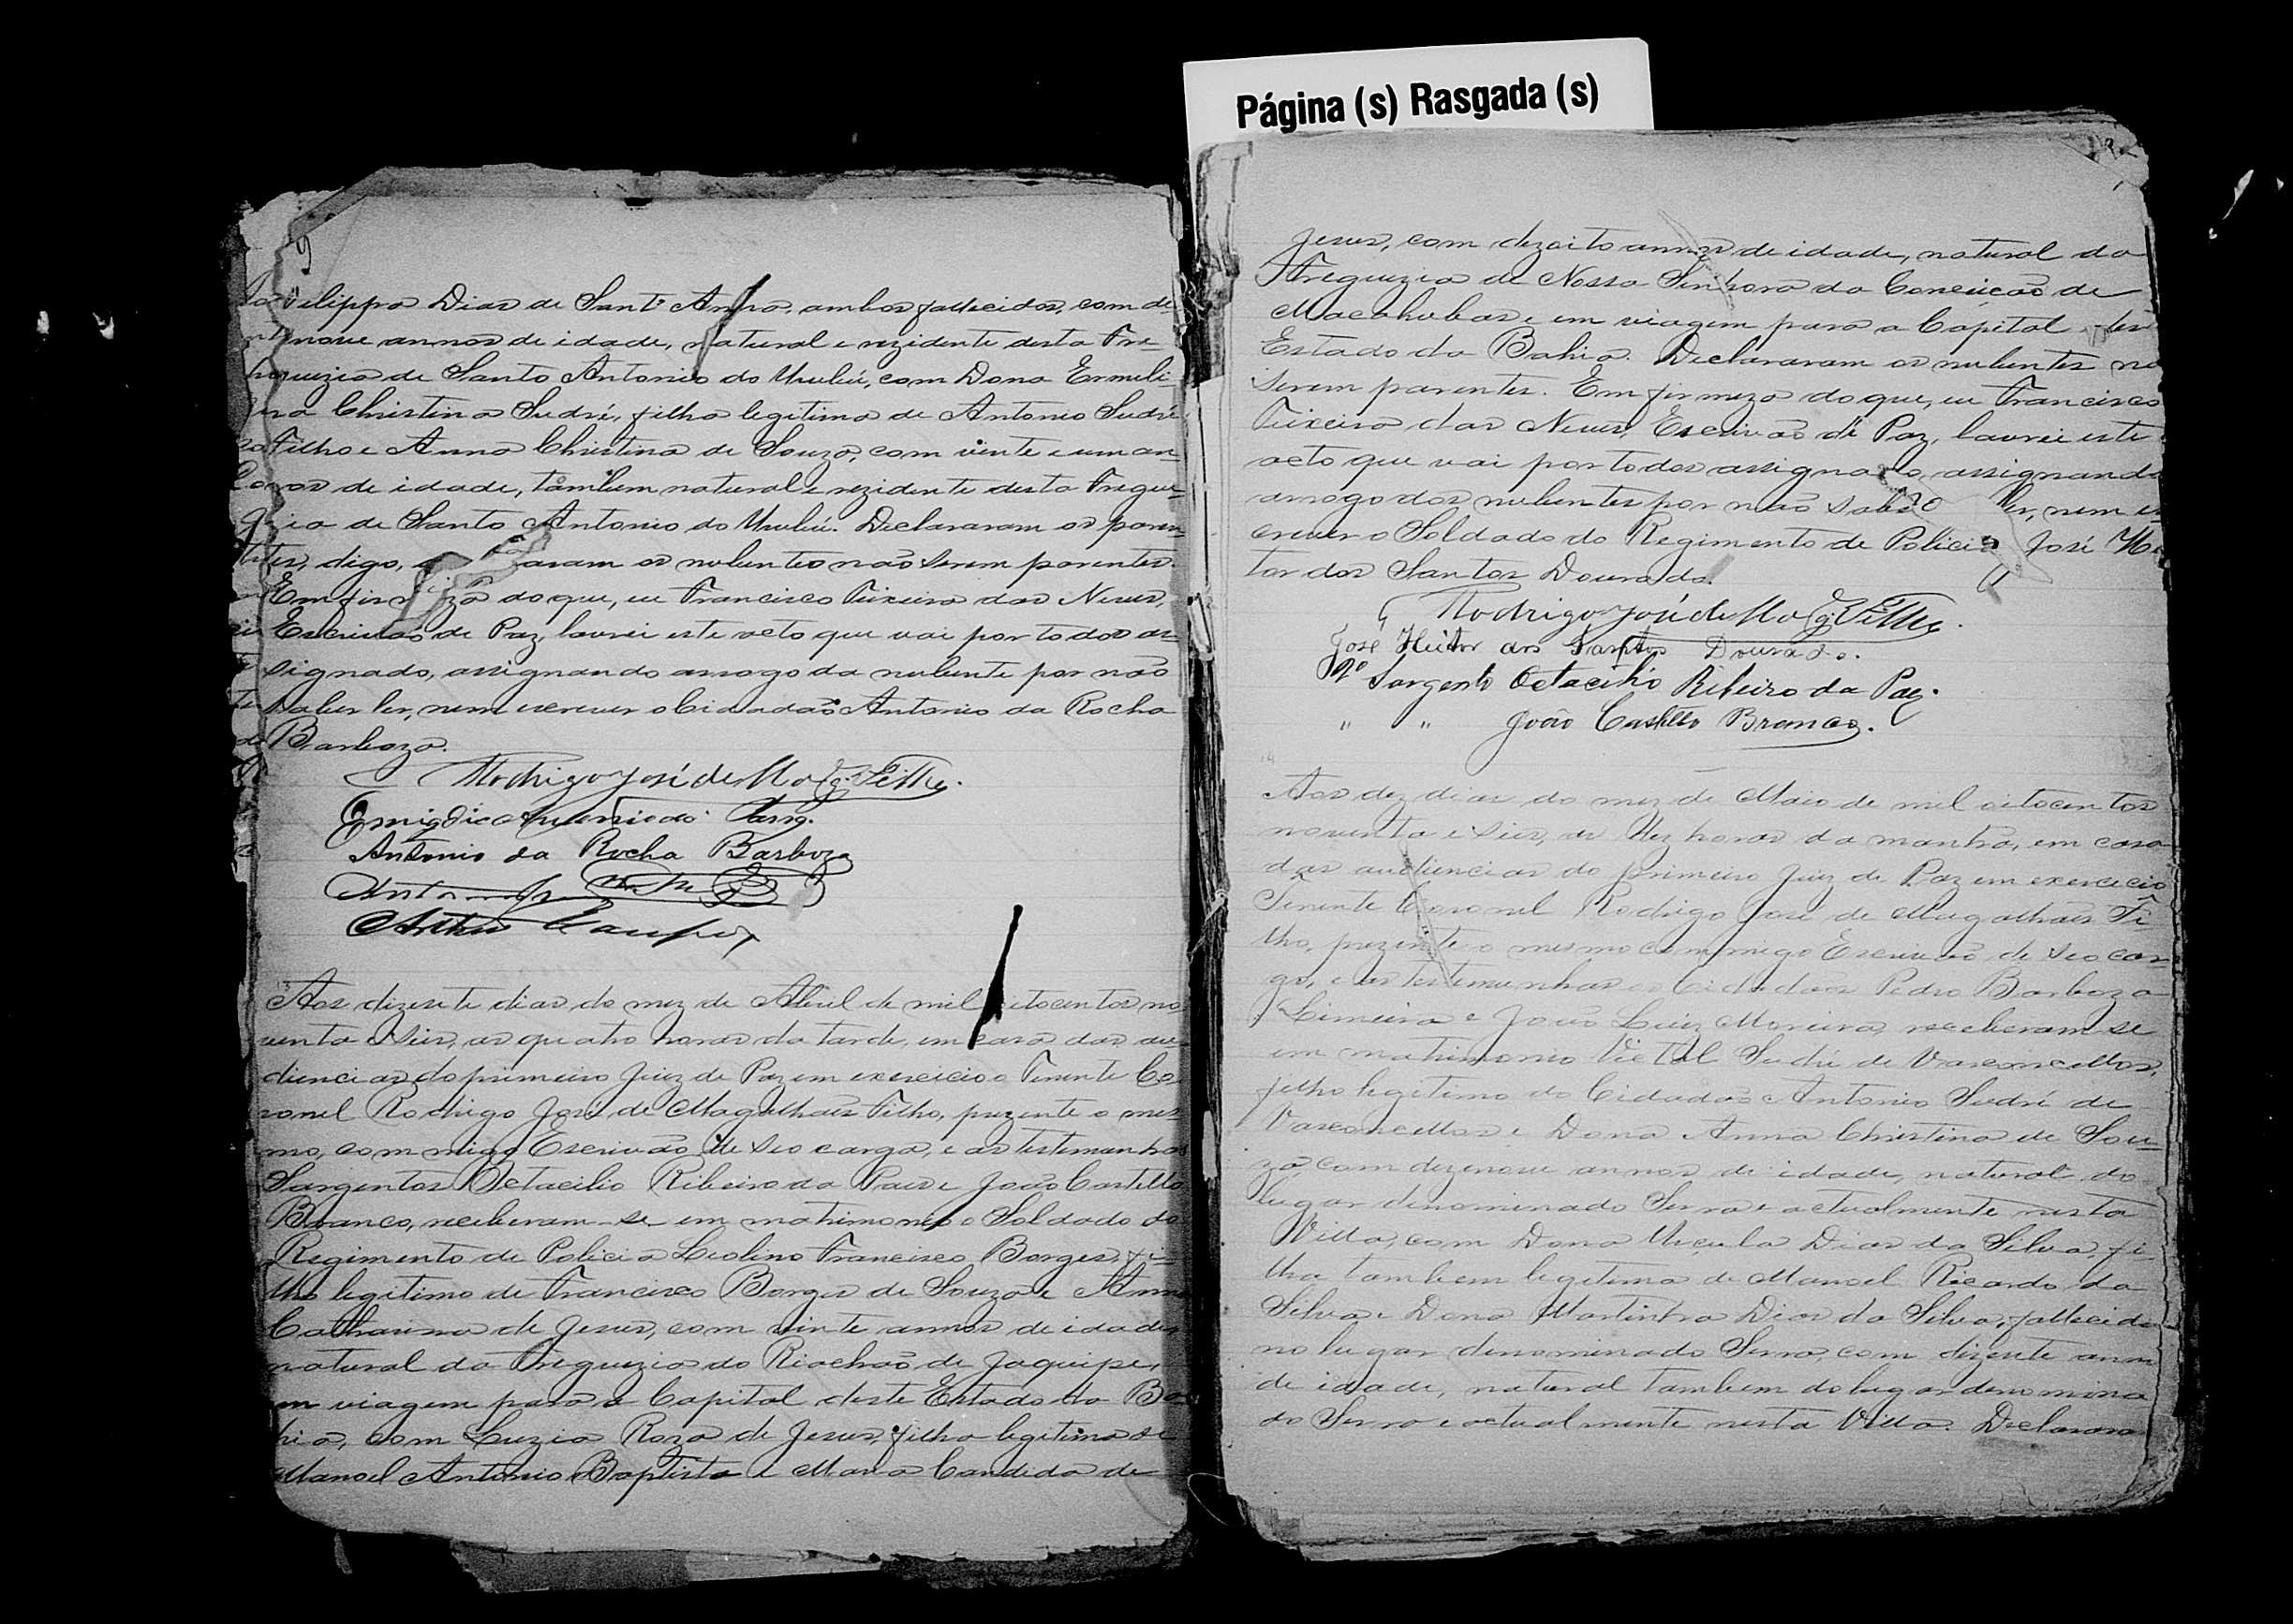 Página (s) Rasgada (s)
9
Filippa Dias de Sant'Anna, ambos fallecidos, com de-
nove annos de idade, natural e rezidente desta Fre-
guezia de Santo Antonio do Urubú, com Dona Ermeli-
na Christina Sudré, filha legitima de Antonio Sudré
Filho e Anna Christina de Souza, com vinte e um an-
nos de idade, tambem natural e rezidente desta Fregue-
zia de Santo Antonio do Urubú. Declararam os paren-
tes, digo, aram os nubentes não serem parentes.
Em firmeza do que, eu Francisco Teixeira das Neves,
Escrivão de Paz, lavrei este acto que vai por todos as-
signado, assignando arrogo da nubente por não
saber ler, nem escrever o Cidadão Antonio da Rocha
Barboza.
Rodrigo José de Mag. Filho.
Emigdio
Antonio da Rocha Barboza
Arthur Campos
13
Aos dizesete dias do mez de Abril de mil oitocentos no
venta e seis, as quatro horas da tarde, em casa das au-
diencias do primeiro Juiz de Paz em exercicio o Tenente Co-
ronel Rodrigo José de Magalhães Filho, prezente o mes
mo, com migo Escrivão de seo cargo, e as testemunhas
Sargentos Octacilio Ribeiro da Paes e João Castello
Branco, receberam-se em matrimonio o Soldado do
Regimento de Policia Leolino Francisco Borges, fi-
lho legitimo de Francisco Borges de Souza e Anna
Catharina de Jesus, com vinte annos de idade,
natural da Freguezia do Riachão de Jaquipe,
em viagem para a Capital deste Estado da Ba
hia, com Luzia Roza de Jesus, filha legitima de
Manoel Antonio Baptista e Maria Candida de
Jesus, com dezoito annos de idade, natural da
Freguezia de Nossa Senhora da Conceição de
Macahubas e em viagem para a Capital des
Estado da Bahia. Declararam os nubentes nã
serem parentes. Em firmeza do que, eu Francisco
Teixeira das Neves, Escrivão de Paz, lavrei este
acto que vai por todos assignado, assignando
arrogo dos nubentes por não saber ler, nem es
crever o Soldado do Regimento de Policia José He
tor dos Santos Dourado.
Rodrigo José de Mag. Filho.
José Heitor dos Santos Dourado.
2º Sargento Octacilio Ribeiro da Paz.
" " João Castello Branco.
14
Aos dez dias do mez de Maio de mil oitocentos
noventa e seis, as dez horas da manhã, em casa
das audiencias do primeiro Juiz de Paz em exercicio
Tenente Coronel Rodrigo José de Magalhães Fi
lho, prezente o mesmo commigo Escrivão de seo car-
go, e as testemunhas os Cidadãos Pedro Barboza
Limeira e João Luiz Moreira, receberam-se
em matrimonio Victal Sudré de Vasconcellos,
filho legitimo do Cidadão Antonio Sudré de
Vasconcellos e Dona Anna Christina de Sou-
za, com dezenove annos de idade, natural do
lugar denominado Serra e actualmente nesta
Villa, com Dona Urçula Dias da Silva, fi-
lha tambem legitima de Manoel Ricardo da
Silva e Dona Martinha Dias da Silva, fallecida
no lugar denominado Serra, com dizesete anno
de idade, natural tambem do lugar denomina
do Serra e actualmente nesta Villa. Declarara